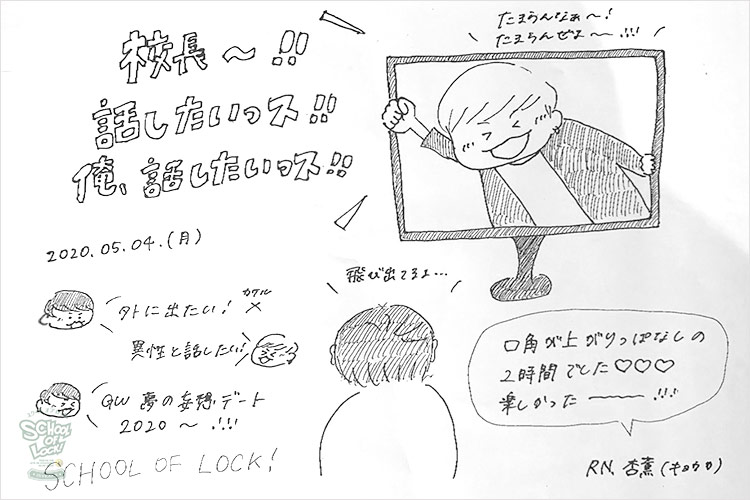 校長〜!!
話したいっス!!
俺、話したいっス!!
たまらんなぁ〜!
たまらんぜよ〜!!!
2020.05.04.(月)
飛び出てるよ…
外に出たい!
異性と話したい!
GW 夢の妄想デート
2020〜!!!
口角が上がりっぱなしの
2時間でした♡♡♡
楽しかった〜!!!
RN. 杏薫(キョウカ)
SCHOOL OF LOCK!
SCHOOL OF LOCK!